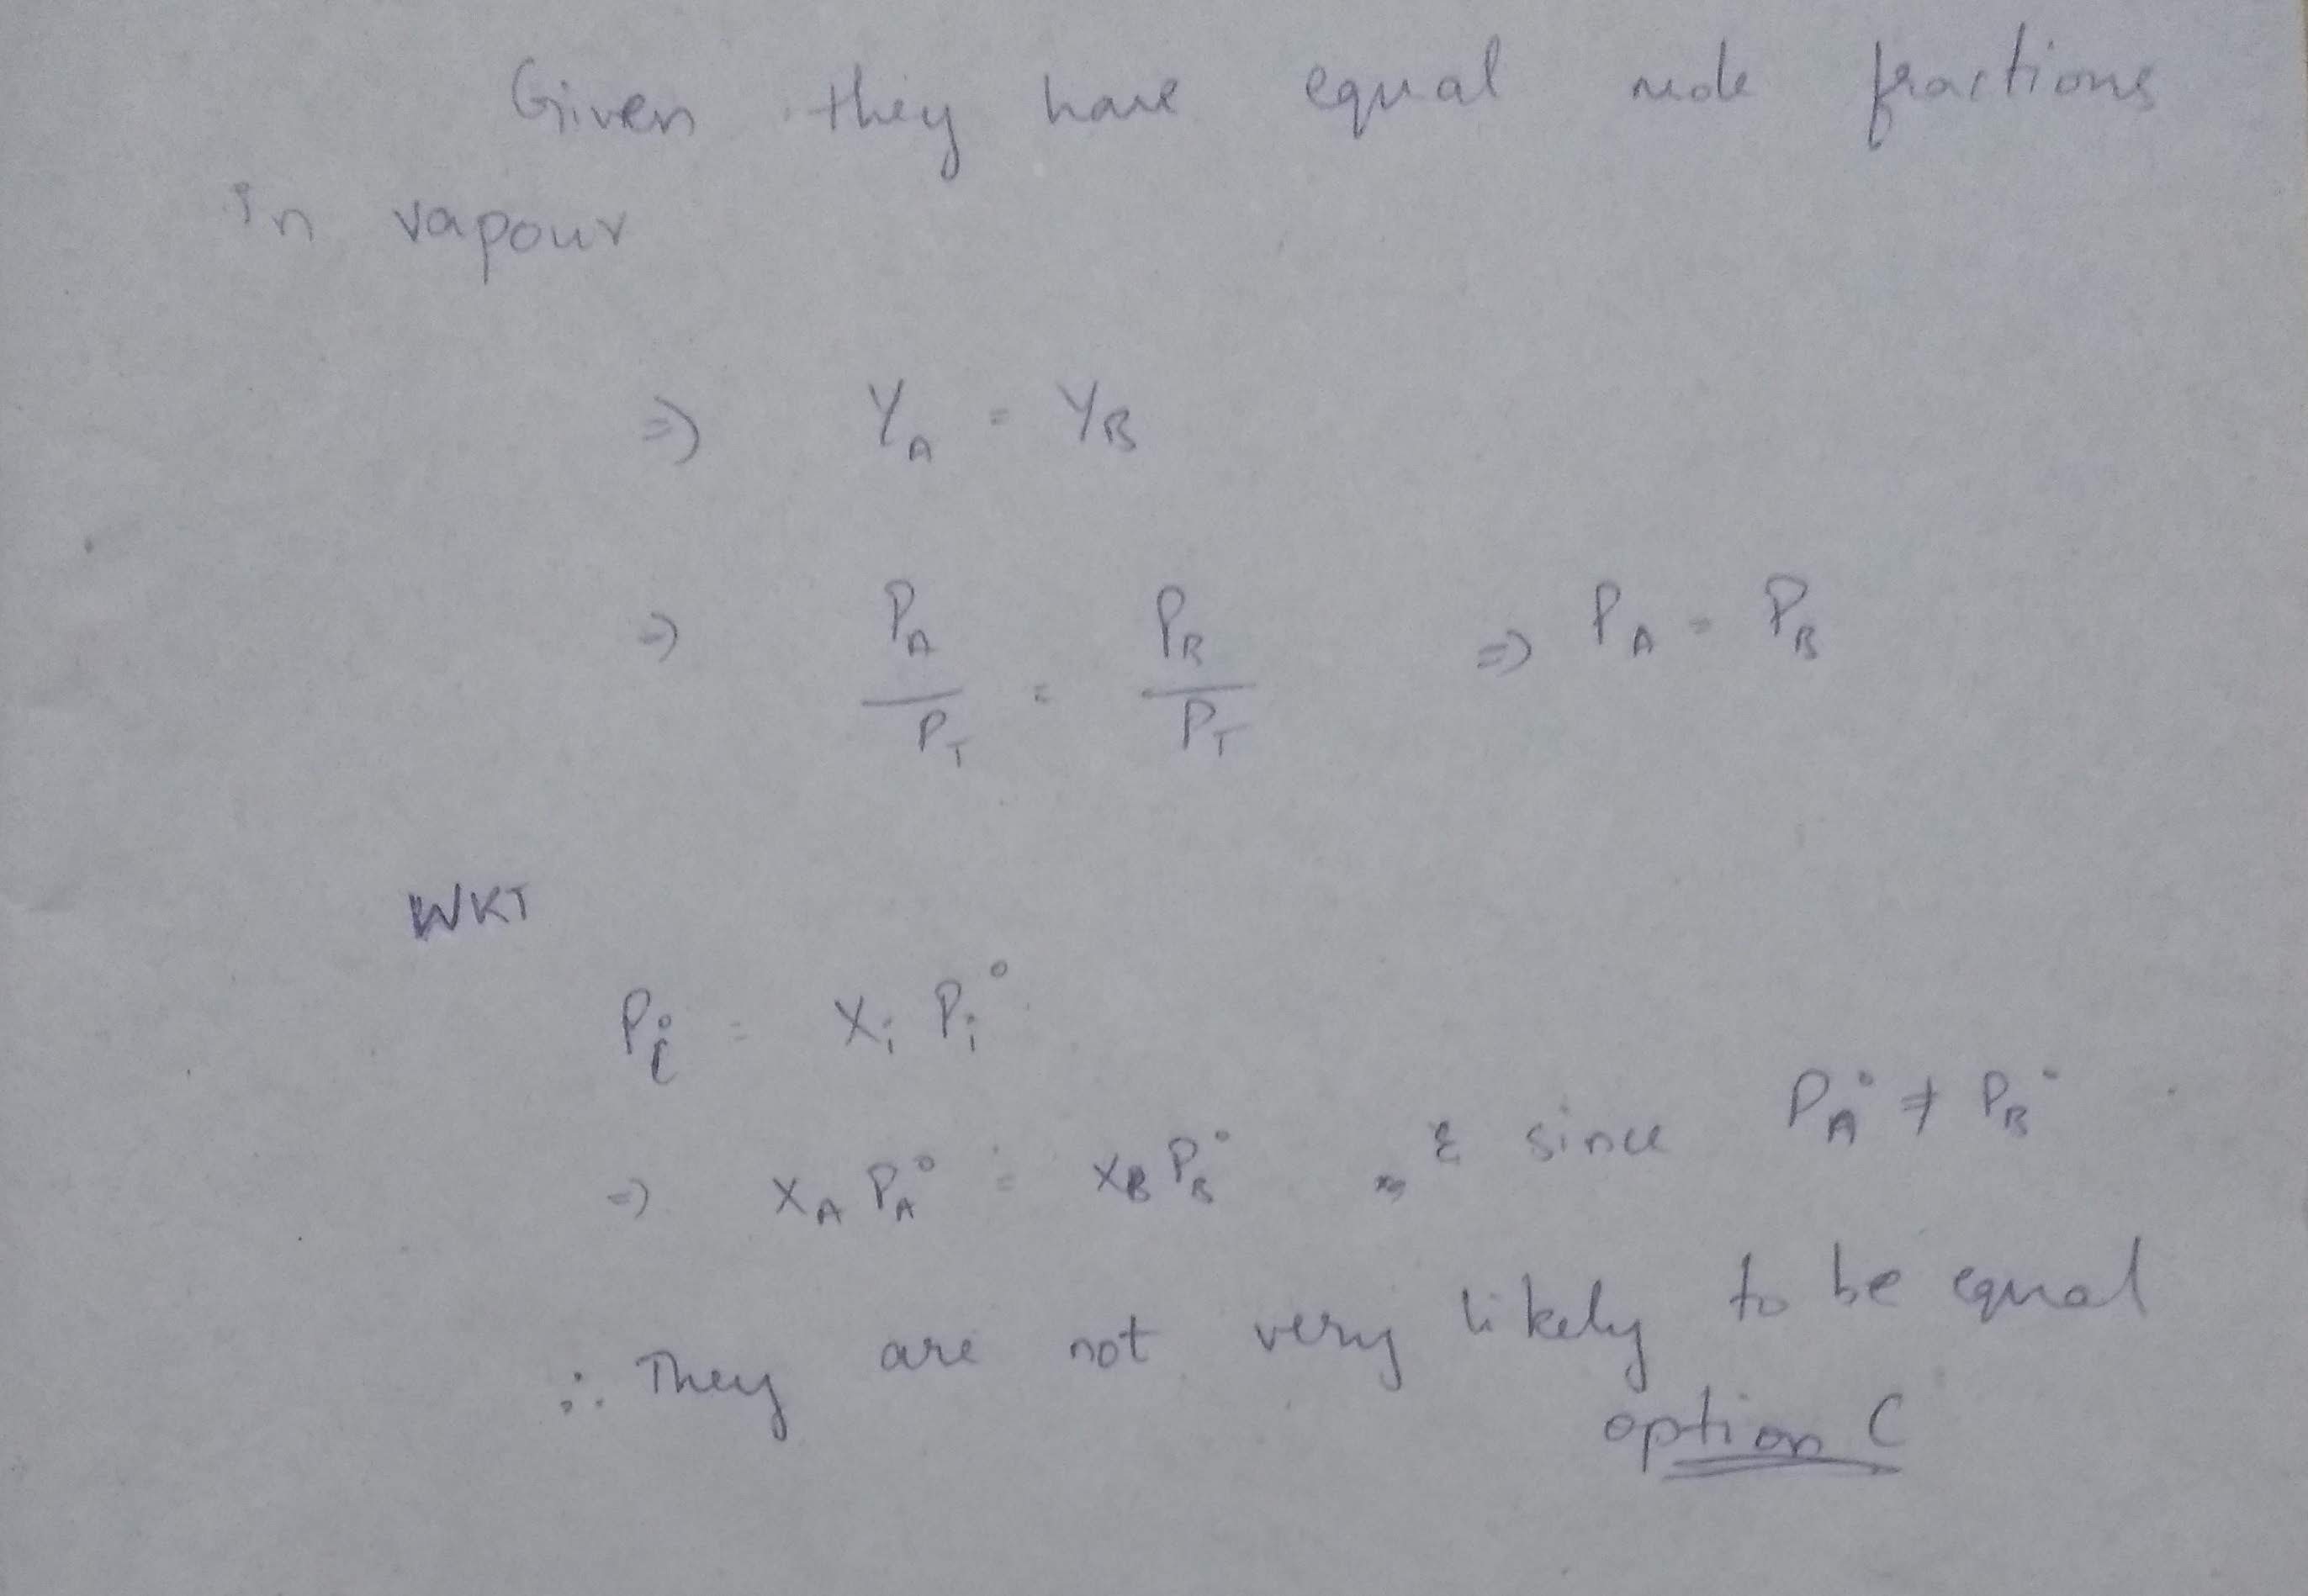 Given they have equal mole fractions
in vapour
⇒ Y_A = Y_B
⇒ P_A / P_T = P_B / P_T ⇒ P_A = P_B
WKT
P_i = X_i P_i°
⇒ X_A P_A° = X_B P_B° & since P_A° ≠ P_B°
∴ They are not very likely to be equal
option C